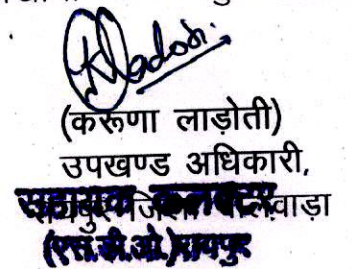 (करूणा लाड़ोती)
उपखण्ड अधिकारी,
सहायक कलक्टर
जिला
(एस.डी.ओ.) रायपुर